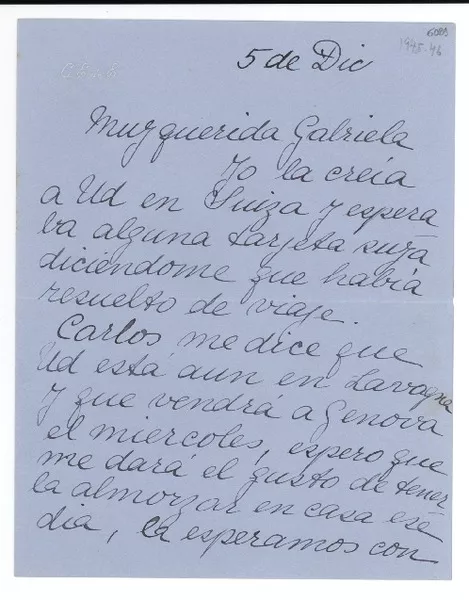 5 de Dic
1945-46
Muy querida Gabriela
Yo la creía
a Ud en Suiza y espera
ba alguna tarjeta suya
diciéndome que había
resuelto de viaje.
Carlos me dice que
Ud está aun en Lavagna
y que vendrá a Genova
el miercoles, espero que
me dará el gusto de tener
la almorzar en casa ese
dia, la esperamos con